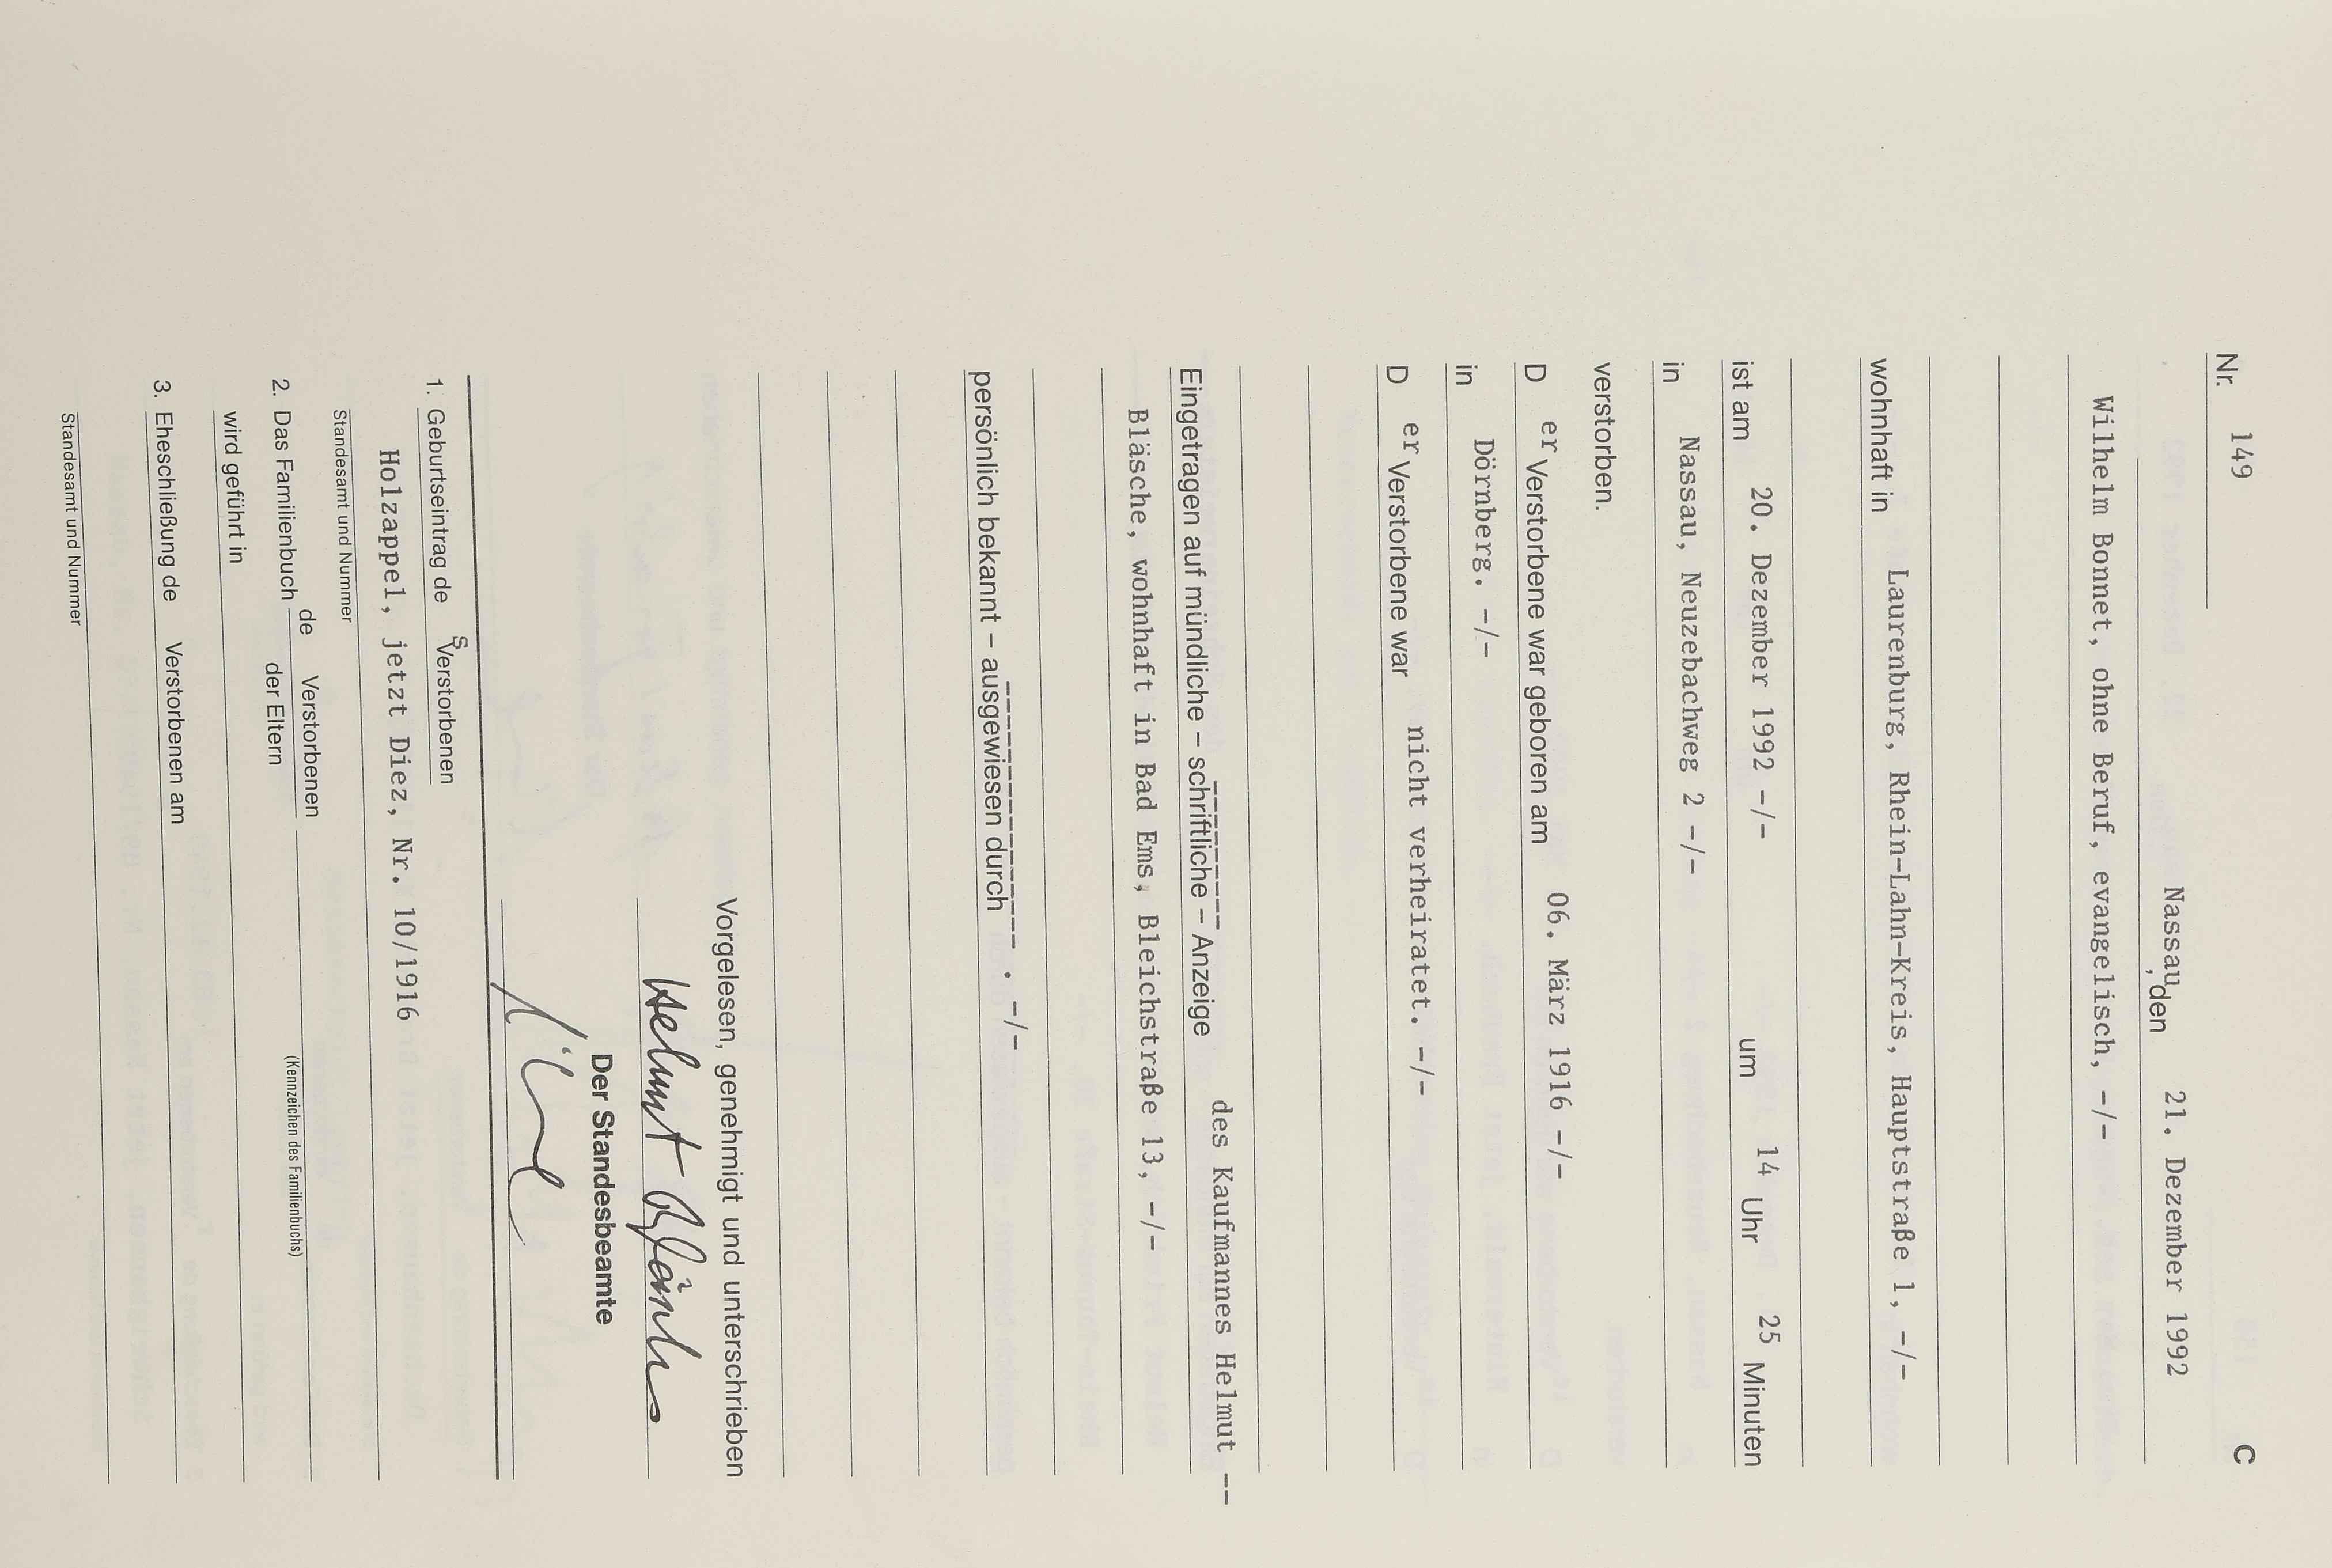 Nr. 149 C
Nassau, den 21. Dezember 1992
Wilhelm Bonnet, ohne Beruf, evangelisch, -/-
wohnhaft in Laurenburg, Rhein-Lahn-Kreis, Hauptstraße 1, -/-
ist am 20. Dezember 1992 -/- um 14 Uhr 25 Minuten
in Nassau, Neuzebachweg 2 -/-
verstorben.
D er Verstorbene war geboren am 06. März 1916 -/-
in Dörnberg. -/-
D er Verstorbene war nicht verheiratet. -/-
Eingetragen auf mündliche – schriftliche – Anzeige des Kaufmannes Helmut --
Bläsche, wohnhaft in Bad Ems, Bleichstraße 13, -/-
persönlich bekannt – ausgewiesen durch . -/-
Vorgelesen, genehmigt und unterschrieben
Helmut Bläsche
Der Standesbeamte
1. Geburtseintrag de s Verstorbenen
Standesamt und Nummer
Holzappel, jetzt Diez, Nr. 10/1916
2. Das Familienbuch de Verstorbenen
der Eltern
(Kennzeichen des Familienbuchs)
wird geführt in
3. Eheschließung de Verstorbenen am
Standesamt und Nummer